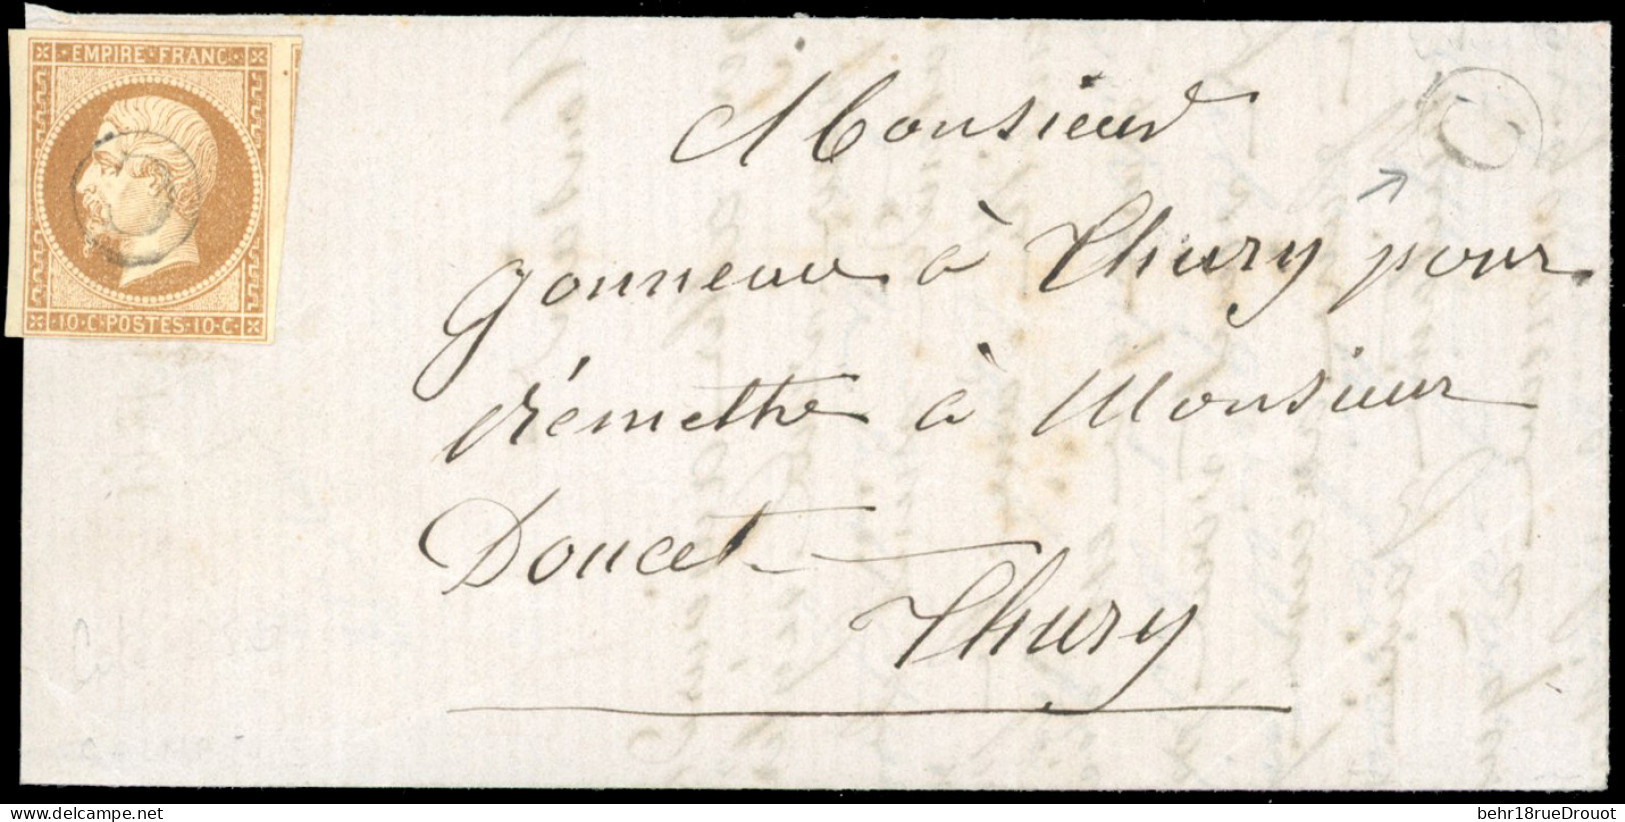 EMPIRE FRANC
10·C·POSTES·10·C·
Monsieur
Gonneau à Thury pour
rémettre à Monsieur
Doucet
Thury
behr18rueDrouot